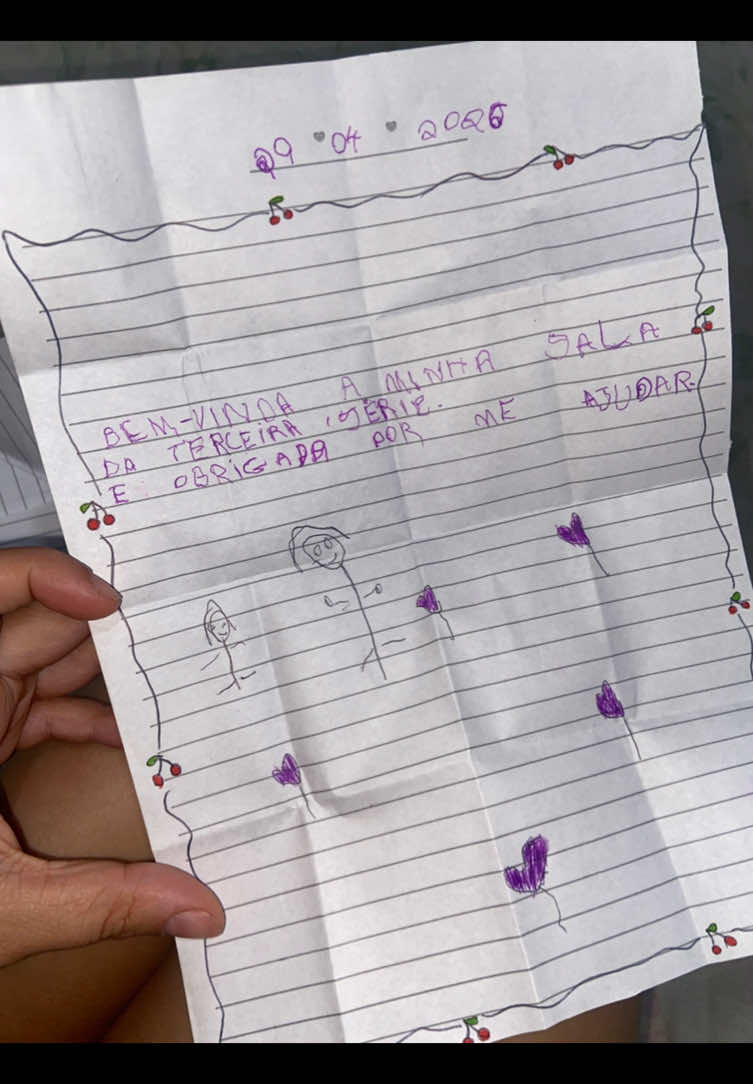 29 ♥ 04 ♥ 2026
BEM-VINDA A MINHA SALA
DA TERCEIRA, SÉRIE.
E OBRIGADA POR ME AJUDAR.